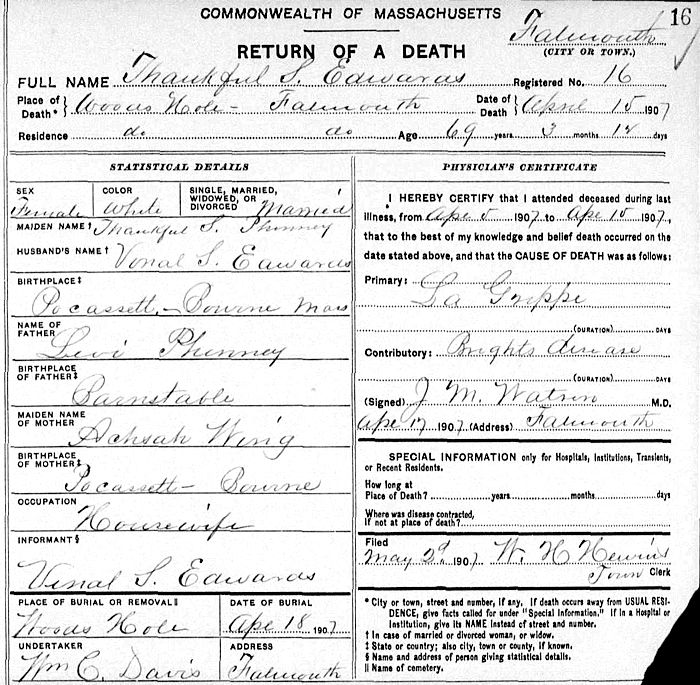 16
COMMONWEALTH OF MASSACHUSETTS
Falmouth
RETURN OF A DEATH
(CITY OR TOWN.)
FULL NAME Thankful S. Edwards Registered No. 16
Place of Death* } Woods Hole - Falmouth Date of Death } April 15 1907
Residence do do Age 69 years 3 months 14 days
STATISTICAL DETAILS
SEX Female
COLOR White
SINGLE, MARRIED, WIDOWED, OR DIVORCED Married
MAIDEN NAME † Thankful S. Phinney
HUSBAND'S NAME † Vinal S. Edwards
BIRTHPLACE ‡
Pocassett - Bourne Mass
NAME OF FATHER
Levi Phinney
BIRTHPLACE OF FATHER ‡
Barnstable
MAIDEN NAME OF MOTHER
Achsah Wing
BIRTHPLACE OF MOTHER ‡
Pocassett - Bourne
OCCUPATION
Housewife
INFORMANT §
Vinal S. Edwards
PLACE OF BURIAL OR REMOVAL ||
Woods Hole
DATE OF BURIAL
Apr 18 1907
UNDERTAKER
Wm C. Davis
ADDRESS
Falmouth
PHYSICIAN'S CERTIFICATE
I HEREBY CERTIFY that I attended deceased during last
illness, from Apr 5 1907 to Apr 15 1907,
that to the best of my knowledge and belief death occurred on the
date stated above, and that the CAUSE OF DEATH was as follows:
Primary: La Grippe
(DURATION) DAYS
Contributory: Brights disease
(DURATION) DAYS
(Signed) J. M. Watson M.D.
Apr 17 1907 (Address) Falmouth
SPECIAL INFORMATION only for Hospitals, Institutions, Transients,
or Recent Residents.
How long at
Place of Death? years months days
Where was disease contracted,
If not at place of death?
Filed
May 2d 1907 W. H. Hewins
Town Clerk
* City or town, street and number, if any. If death occurs away from USUAL RESI-
DENCE, give facts called for under "Special Information." If in a Hospital or
Institution, give its NAME instead of street and number.
† In case of married or divorced woman, or widow.
‡ State or country; also city, town or county, if known.
§ Name and address of person giving statistical details.
|| Name of cemetery.